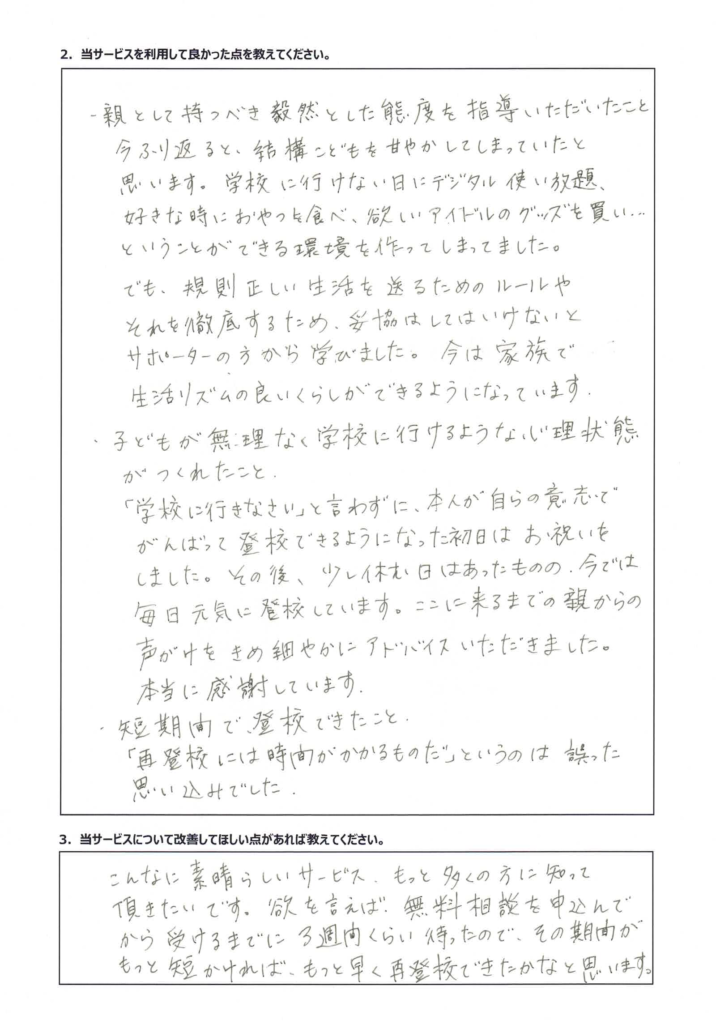 2. 当サービスを利用して良かった点を教えてください。
・親として持つべき毅然とした態度を指導いただいたこと
今ふり返ると、結構こどもを甘やかしてしまっていたと
思います。学校に行けない日にデジタル使い放題、
好きな時におやつを食べ、欲しいアイドルのグッズを買い…
ということができる環境を作ってしまってました。
でも、規則正しい生活を送るためのルールや
それを徹底するため、妥協はしてはいけないと
サポーターの方から学びました。今は家族で
生活リズムの良いくらしができるようになっています。
・子どもが無理なく学校に行けるような心理状態
がつくれたこと。
「学校に行きなさい」と言わずに、本人が自らの意志で
がんばって登校できるようになった初日はお祝いを
しました。その後、少し休む日はあったものの、今では
毎日元気に登校しています。ここに来るまでの親からの
声がけをきめ細やかにアドバイスいただきました。
本当に感謝しています。
・短期間で、登校できたこと。
「再登校には時間がかかるものだ」というのは誤った
思い込みでした。
3. 当サービスについて改善してほしい点があれば教えてください。
こんなに素晴らしいサービス、もっと多くの方に知って
頂きたいです。欲を言えば、無料相談を申込んで
から受けるまでに3週間くらい待ったので、その期間が
もっと短かければ、もっと早く再登校できたかなと思います。